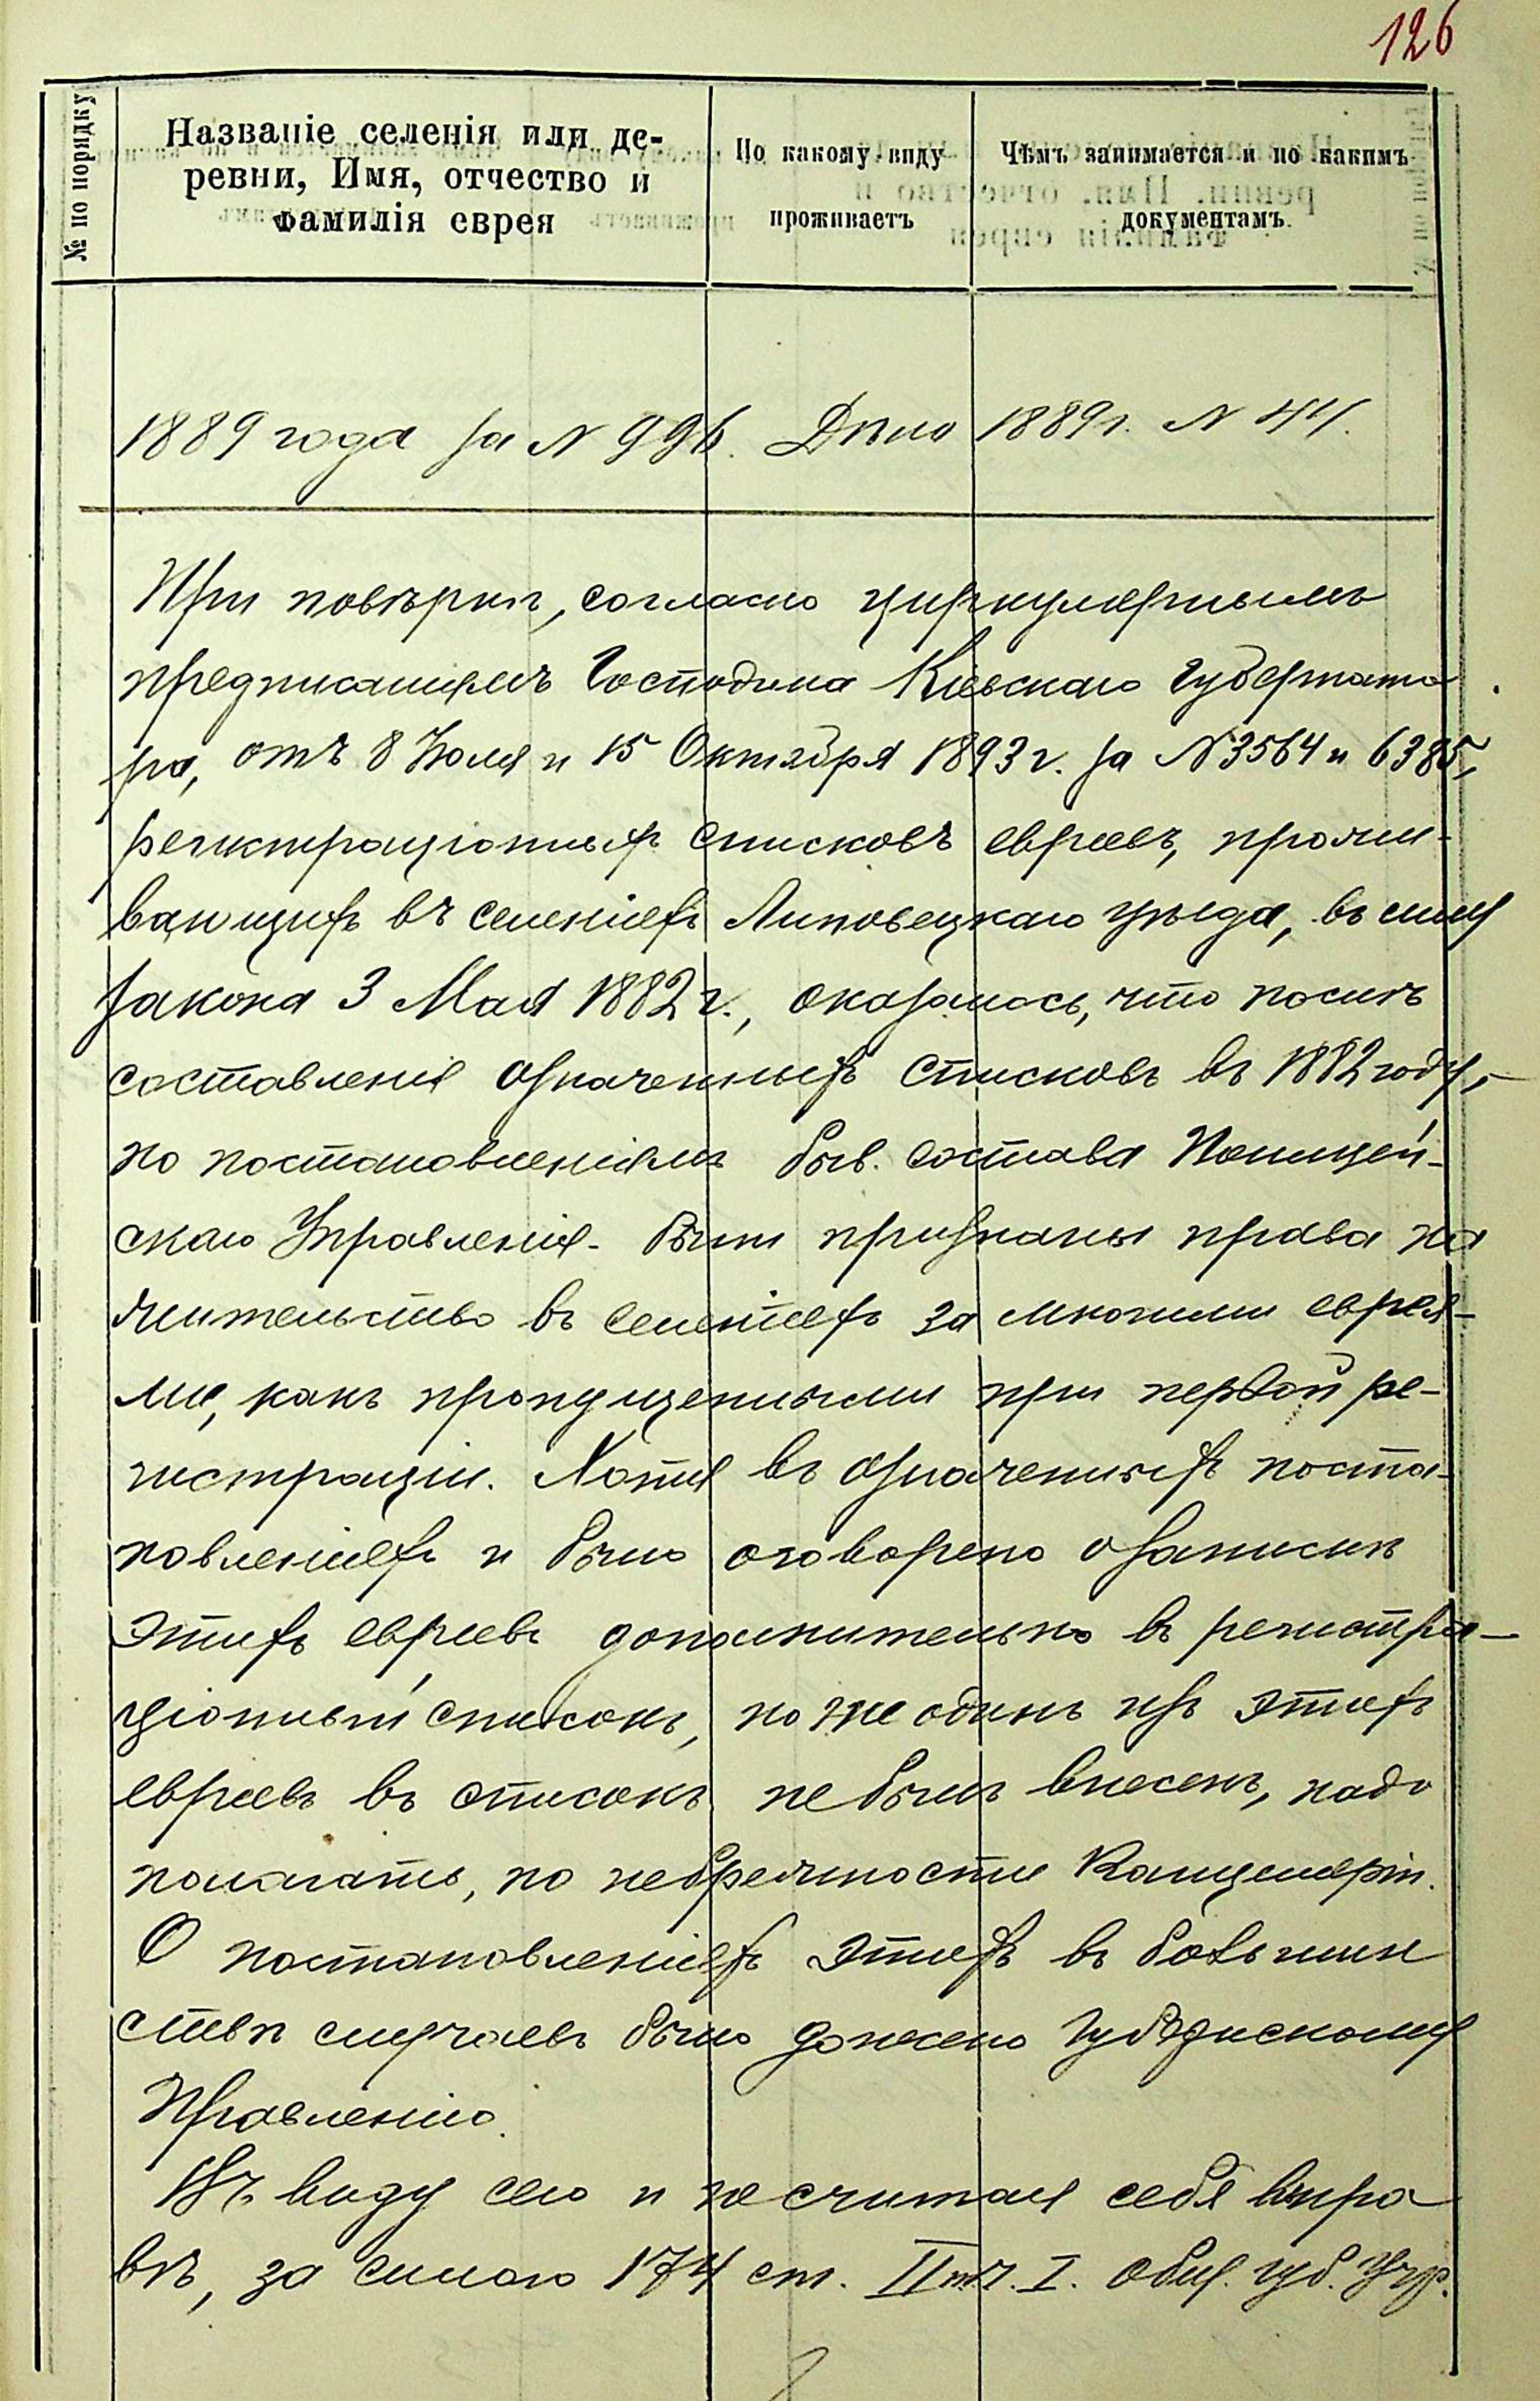 126
№ по порядку
Названіе селенія или де-
ревни, Имя, отчество и
фамилія еврея
По какому виду
проживаетъ
Чѣмъ занимается и по какимъ
документамъ.
1889 года за № 996. Дѣло 1889 г. № 44.
При повѣркѣ, согласно циркулярнымъ
предписаніямъ Господина Кіевскаго Губернато
ра, отъ 8 Іюля и 15 Октября 1893 г. за № 3564 и 6385,
регистраціонныхъ списковъ евреевъ, прожи-
вающихъ въ селеніяхъ Липовецкаго уѣзда, въ силу
закона 3 Мая 1882 г., оказалось, что послѣ
составленія означенныхъ списковъ въ 1882 году,-
по постановленіямъ быв. состава Полицей-
скаго Управленія- были признаны права на
жительство въ селеніяхъ за многими еврея-
ми, какъ пропущенными при первой ре-
гистраціи. Хотя въ означенныхъ поста-
новленіяхъ и было оговорено о запискѣ
этихъ евреевъ дополнительно въ регистра-
ціонный списокъ, но не одинъ изъ этихъ
евреевъ въ списокъ не былъ внесенъ, надо
полагать, по небрежности Канцеляріи.
О постановленіяхъ этихъ въ большин
ствѣ случаевъ было донесено Губернскому
Правленію.
Въ виду сего и не считая себя впра
вѣ, за силою 174 ст. II т. ч. I. Общ. губ. Учр.